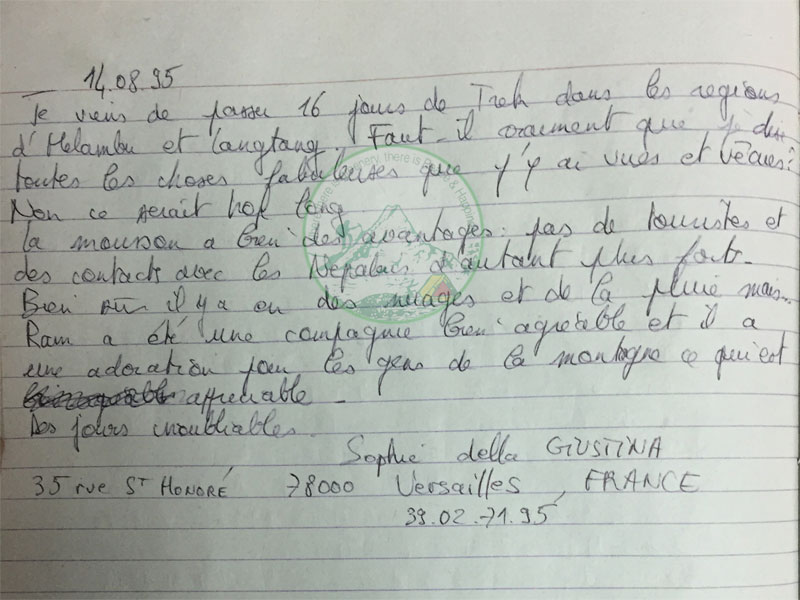 14.08.95
Je viens de passer 16 jours de Trek dans les regions
d'Helambu et Langtang. Faut-il vraiment que je dise
toutes les choses fabuleuses que j'y ai vues et vécues?
Non ce serait trop long
la mousson a bien des avantages: pas de touristes et
des contacts avec les Nepalais d'autant plus forts-
Bien sûr il y a eu des nuages et de la pluie mais...
Ram a été une compagnie bien agréable et il a
une adoration pour les gens de la montagne ce qui est
appreciable -
Des jours inoubliables.
Sophie della GIUSTINA
35 rue ST HONORÉ 78000 Versailles, FRANCE
39.02.71.95